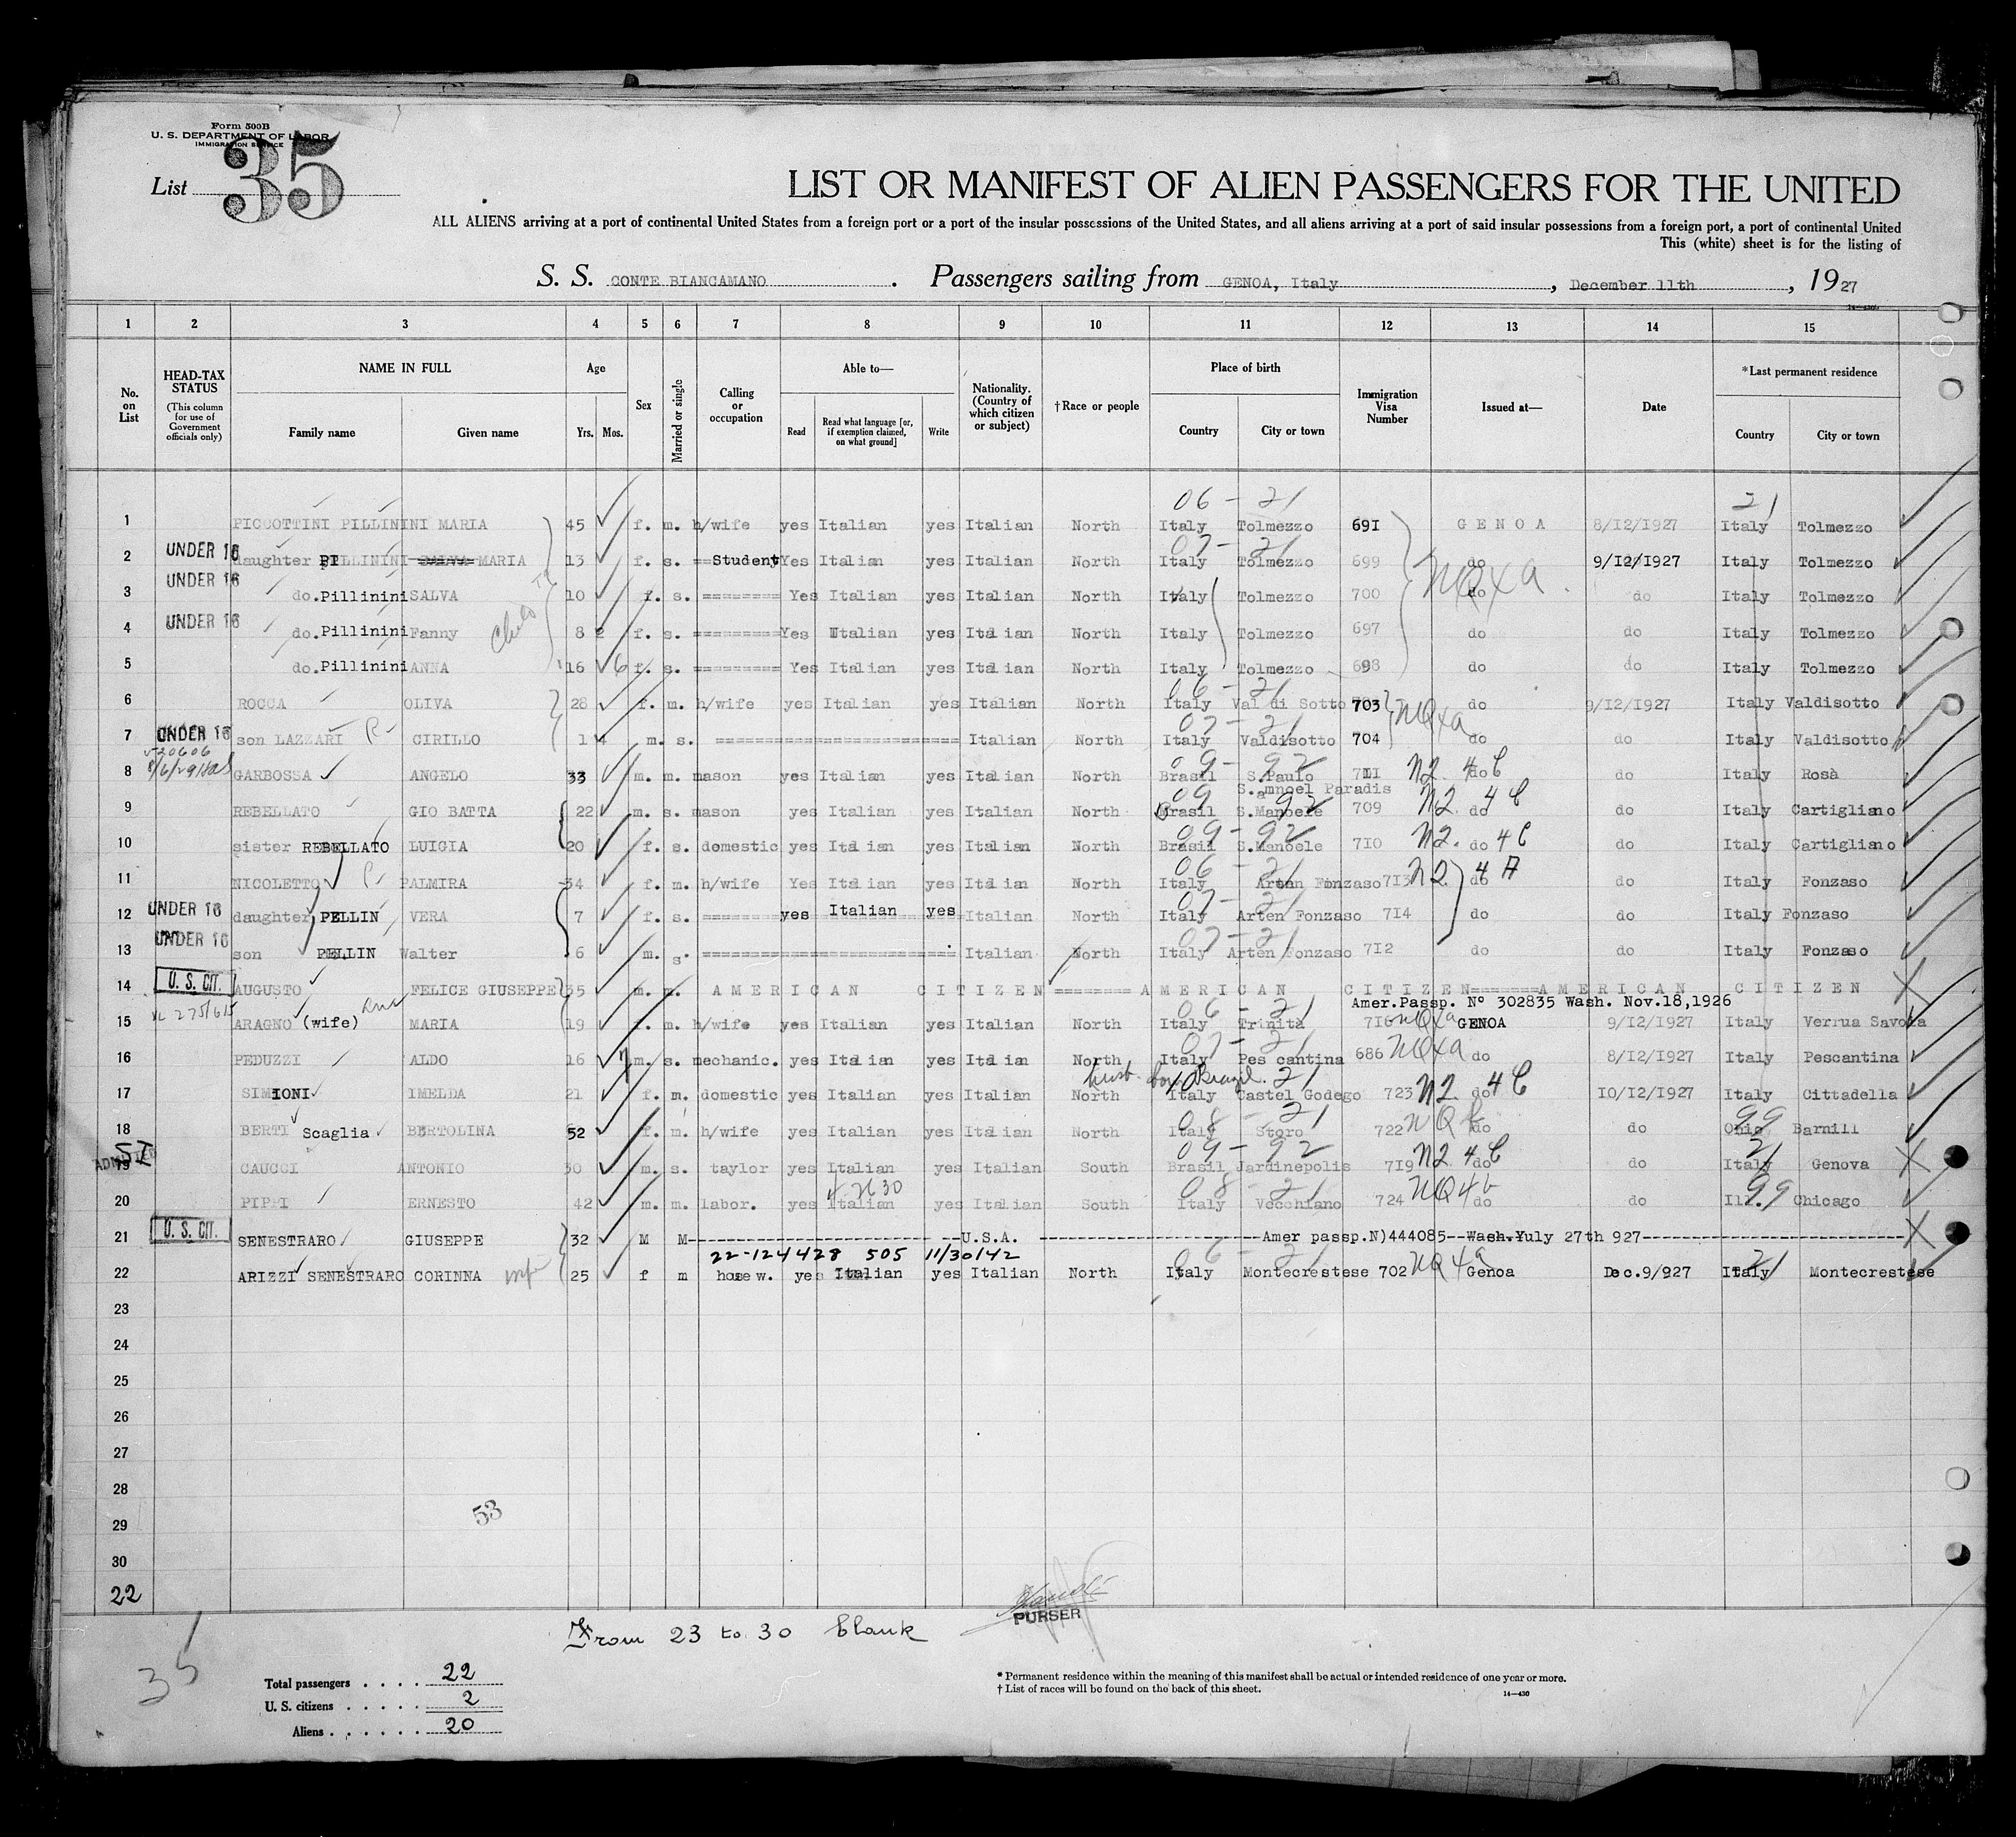 Form 500B
U. S. DEPARTMENT OF LABOR
IMMIGRATION SERVICE
List 35
LIST OR MANIFEST OF ALIEN PASSENGERS FOR THE UNITED
ALL ALIENS arriving at a port of continental United States from a foreign port or a port of the insular possessions of the United States, and all aliens arriving at a port of said insular possessions from a foreign port, a port of continental United
This (white) sheet is for the listing of
S. S. CONTE BIANCAMANO . Passengers sailing from GENOA, Italy , December 11th , 1927
1 2 3 4 5 6 7 8 9 10 11 12 13 14 15
No. on List
HEAD-TAX STATUS
(This column for use of Government officials only)
NAME IN FULL
Family name Given name
Age
Yrs. Mos.
Sex
Married or single
Calling or occupation
Able to—
Read
Read what language [or, if exemption claimed, on what ground]
Write
Nationality. (Country of which citizen or subject)
† Race or people
Place of birth
Country City or town
Immigration Visa Number
Issued at—
Date
* Last permanent residence
Country City or town
06 - 21 21
1 PICCOTTINI PILLININI MARIA 45 f. m. h/wife yes Italian yes Italian North Italy Tolmezzo 691 GENOA 8/12/1927 Italy Tolmezzo
07 - 21
2 UNDER 16 daughter PILLININI MARIA 13 f. s. Student Yes Italian yes Italian North Italy Tolmezzo 699 do 9/12/1927 Italy Tolmezzo
NQxa
3 UNDER 16 do. Pillinini SALVA 10 f. s. ======== Yes Italian yes Italian North Italy Tolmezzo 700 do do Italy Tolmezzo
4 UNDER 16 do. Pillinini Fanny 8 f. s. ========= Yes Italian yes Italian North Italy Tolmezzo 697 do do Italy Tolmezzo
5 do. Pillinini ANNA 16 6 f. s. ========= Yes Italian yes Italian North Italy Tolmezzo 698 do do Italy Tolmezzo
06 - 21
6 ROCCA OLIVA 28 f. m. h/wife yes Italian yes Italian North Italy Val di Sotto 703 do 9/12/1927 Italy Valdisotto
07 - 21 NQxa
7 UNDER 16 son LAZZARI CIRILLO 1 4 m. s. ======================== Italian North Italy Valdisotto 704 do do Italy Valdisotto
09 - 92
8 GARBOSSA ANGELO 33 m. m. mason yes Italian yes Italian North Brasil S.Paulo 711 N2. 4C do do Italy Rosà
09 92
9 REBELLATO GIO BATTA 22 m. s. mason yes Italian yes Italian North Brasil S.Manoele 709 N2. 4C do do Italy Cartigliano
09 - 92
10 sister REBELLATO LUIGIA 20 f. s. domestic yes Italian yes Italian North Brasil S.Manoele 710 N2. do 4C do Italy Cartigliano
06 - 21
11 NICOLETTO PALMIRA 34 f. m. h/wife Yes Italian yes Italian North Italy Arten Fonzaso 713 N2. 4A do do Italy Fonzaso
07 - 21
12 UNDER 16 daughter PELLIN VERA 7 f. s. ======= yes Italian yes Italian North Italy Arten Fonzaso 714 do do Italy Fonzaso
07 - 21
13 UNDER 16 son PELLIN Walter 6 m. s. ======================== Italian North Italy Arten Fonzaso 712 do do Italy Fonzaso
14 U. S. CIT. AUGUSTO FELICE GIUSEPPE 35 m. m. AMERICAN CITIZEN======== AMERICAN CITIZEN=======AMERICAN CITIZEN
Amer.Passp. N° 302835 Wash. Nov.18,1926
06 - 21
15 ARAGNO (wife) MARIA 19 f. m. h/wife yes Italian yes Italian North Italy Trinità 716 NQxa GENOA 9/12/1927 Italy Verrua Savoia
07 - 21
16 PEDUZZI ALDO 16 m. s. mechanic. yes Italian yes Italian North Italy Pescantina 686 NQxa do 8/12/1927 Italy Pescantina
husb. Brazil. 21
17 SIMIONI IMELDA 21 f. m. domestic yes Italian yes Italian North Italy Castel Godego 723 N2. do 4C 10/12/1927 Italy Cittadella
08 - 21 99
18 BERTI Scaglia BERTOLINA 52 f. m. h/wife yes Italian yes Italian North Italy Storo 722 do do Ohio Barnill
09 - 92 21
19 ADMITTED SI CAUCCI ANTONIO 30 m. s. taylor yes Italian yes Italian South Brasil Jardinepolis 719 N2 4C do do Italy Genova
08 - 21 99
20 PIPPI ERNESTO 42 m. m. labor. yes Italian yes Italian South Italy Vecchiano 724 do do Ill. Chicago
21 U. S. CIT. SENESTRARO GIUSEPPE 32 M M--------------------------U.S.A. ----------------------Amer passp.N)444085--Wash.Yuly 27th 927--------------------------
22-124428 505 11/30/42
06 - 21
22 ARIZZI SENESTRARO CORINNA wife 25 f m house w. yes Italian yes Italian North Italy Montecrestese 702 NQ4a Genoa Dec.9/927 Italy Montecrestese
23
24
25
26
27
28
29
30
53
22
PURSER
From 23 to 30 blank
35
Total passengers . . . . 22
U. S. citizens . . . . . 2
Aliens . . . . . . 20
* Permanent residence within the meaning of this manifest shall be actual or intended residence of one year or more.
† List of races will be found on the back of this sheet.
14—430